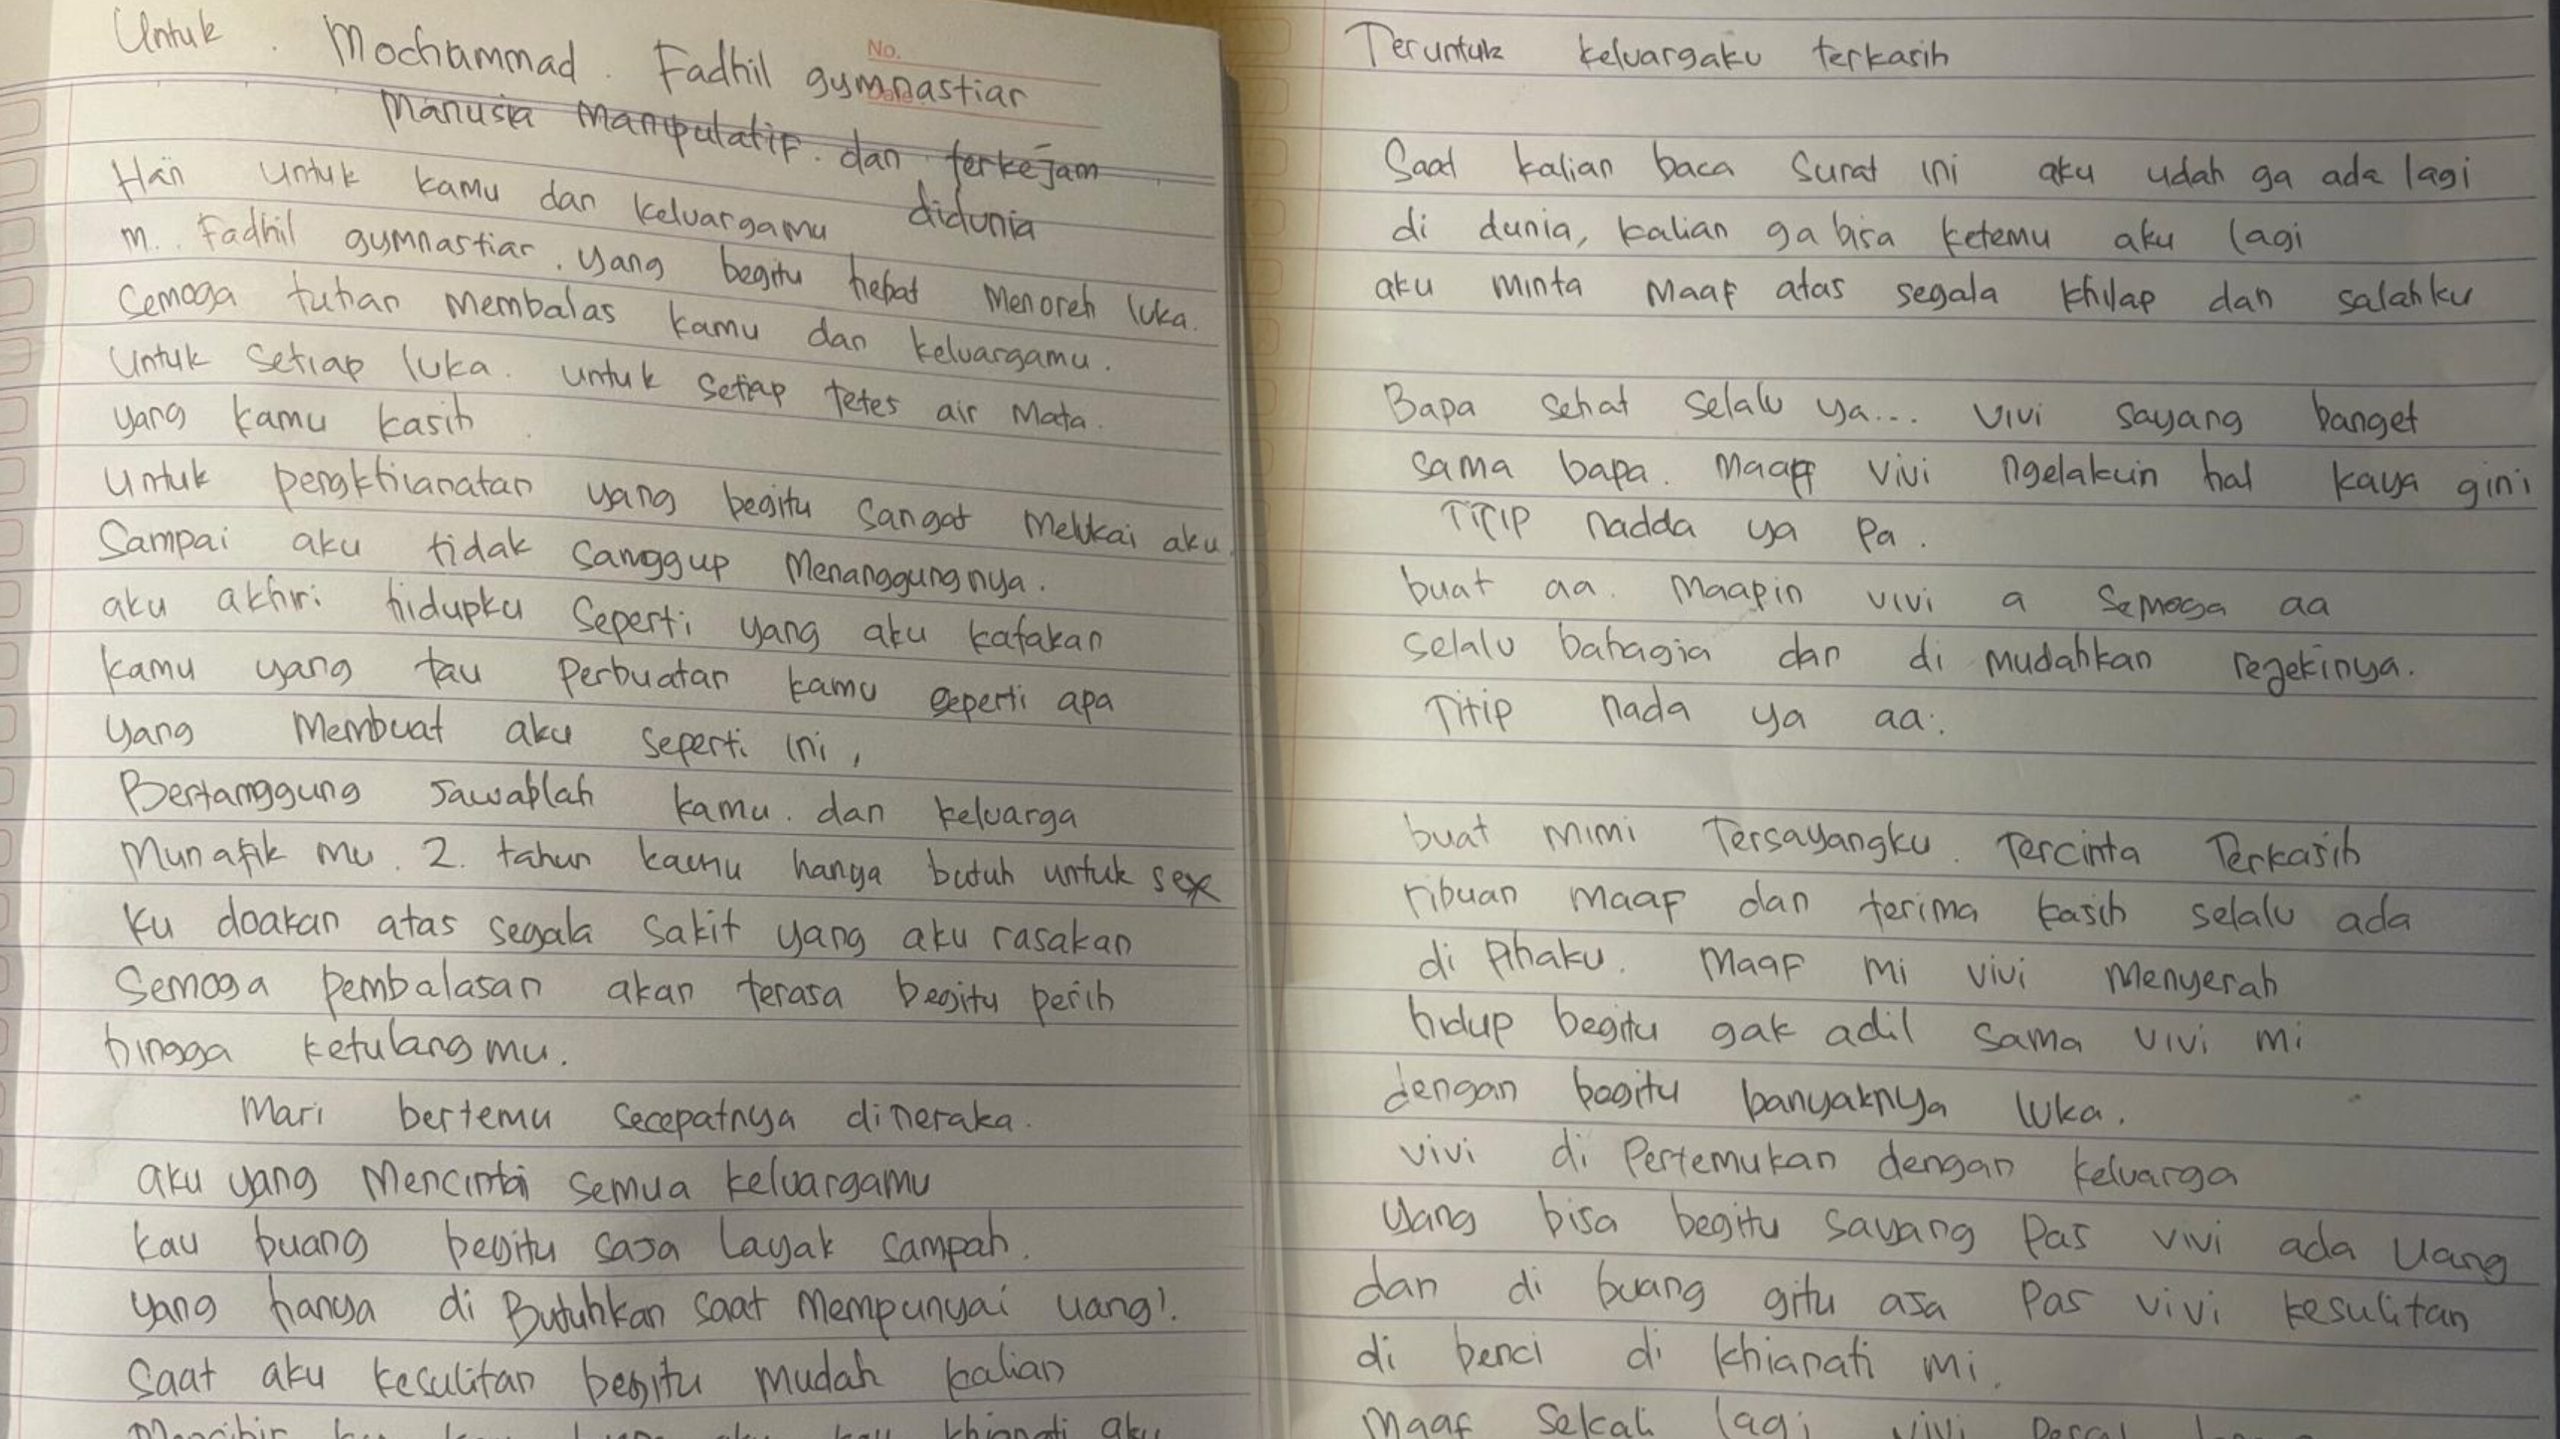 Untuk . Mochammad . Fadhil gymnastiar
No.
Manusia Manipulatif . dan terkejam
didunia
Hän untuk kamu dan keluargamu
M. Fadhil gymnastiar . yang begitu hebat Menoreh luka.
Semoga tuhan Membalas kamu dan keluargamu.
Untuk setiap luka . untuk setiap tetes air Mata.
yang kamu kasih .
Untuk pengkhianatan yang begitu sangat Melukai aku.
Sampai aku tidak sanggup Menanggungnya.
aku akhiri hidupku seperti yang aku katakan
kamu yang tau Perbuatan kamu seperti apa
yang Membuat aku seperti ini,
Bertanggung Jawablah kamu . dan keluarga
Munafik mu . 2. tahun kamu hanya butuh untuk sex
Ku doakan atas segala sakit yang aku rasakan
Semoga pembalasan akan terasa begitu perih
hingga ketulang mu.
Mari bertemu secepatnya dineraka.
aku yang Mencintai semua keluargamu
kau buang begitu saja Layak sampah.
yang hanya di Butuhkan saat Mempunyai uang!.
Saat aku kesulitan begitu mudah kalian
khianati aku
Teruntuk keluargaku terkasih
Saat kalian baca Surat ini aku udah ga ada lagi
di dunia, kalian ga bisa ketemu aku lagi
aku minta Maaf atas segala khilap dan salahku
Bapa sehat selalu ya... vivi sayang banget
sama bapa. Maaff vivi ngelakuin hal kaya gini
TITIP nadda ya Pa .
buat aa . Maapin vivi a semoga aa
selalu bahagia dan di mudahkan rejekinya.
Titip nada ya aa.
buat mimi Tersayangku . Tercinta Terkasih
ribuan maaf dan terima kasih selalu ada
di Pihaku. Maaf mi vivi Menyerah
hidup begitu gak adil sama vivi mi
dengan begitu banyaknya luka.
vivi di Pertemukan dengan keluarga
yang bisa begitu sayang Pas vivi ada uang
dan di buang gitu aja Pas vivi kesulitan
di benci di khianati mi.
Maaf sekali lagi vivi